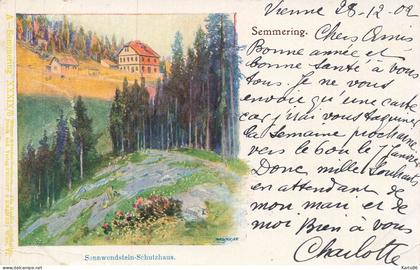 A - Semmering - XXXIX/6
Vienne 28-12-02
Semmering.
Chers Amis
Bonne année et
bonne santé à vous
tous. Je ne vous
envoie qu'une carte
car j'irai vous
la semaine prochaine
vers le 6 ou 7 Janvier
Donc mille souhaits
en attendant de
mon mari et de
moi Bien à vous
Charlotte
Sonnwendstein-Schutzhaus.